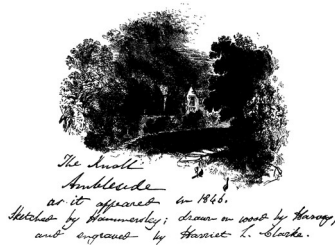 The Knoll
Ambleside
as it appeared in 1846.
Sketched by Hammersley; drawn on wood by Harvey,
and engraved by Harriet L. Clarke.